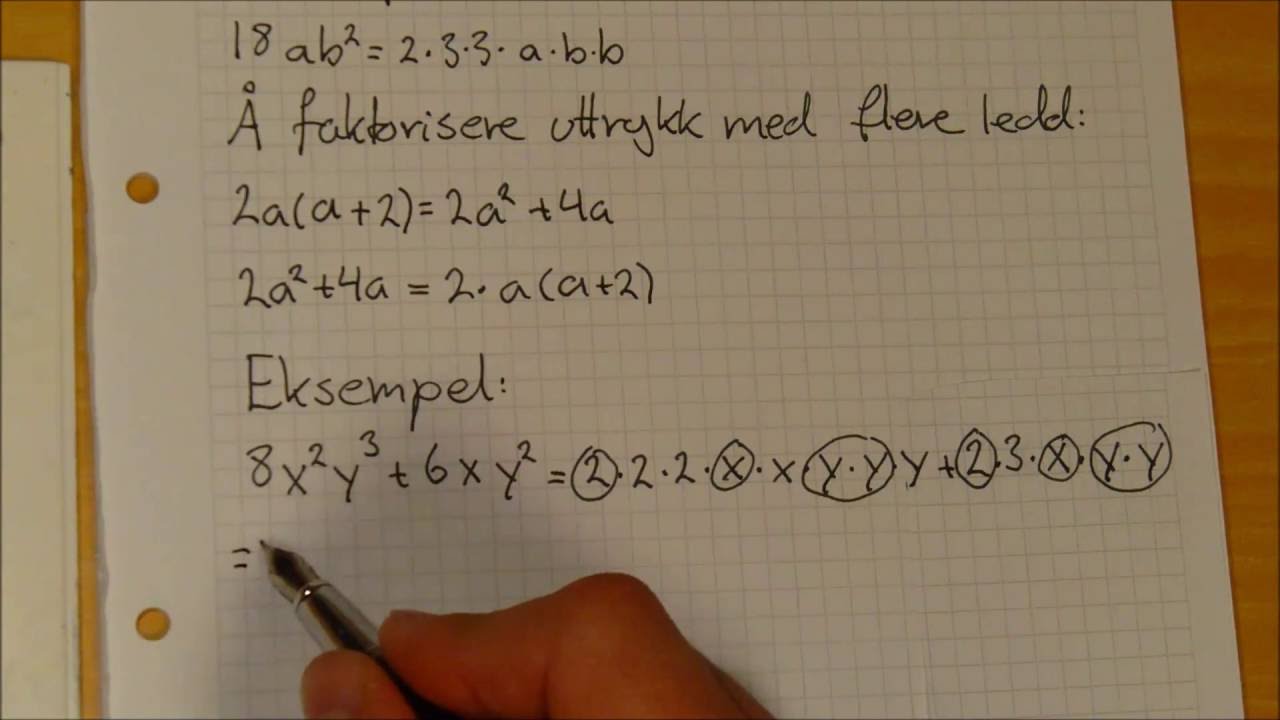 18ab² = 2·3·3·a·b·b
Å faktorisere uttrykk med flere ledd:
2a(a+2)=2a²+4a
2a²+4a = 2·a(a+2)
Eksempel:
8x²y³+6xy²=2·2·2·x·x y·y y+2·3·x·y·y
=